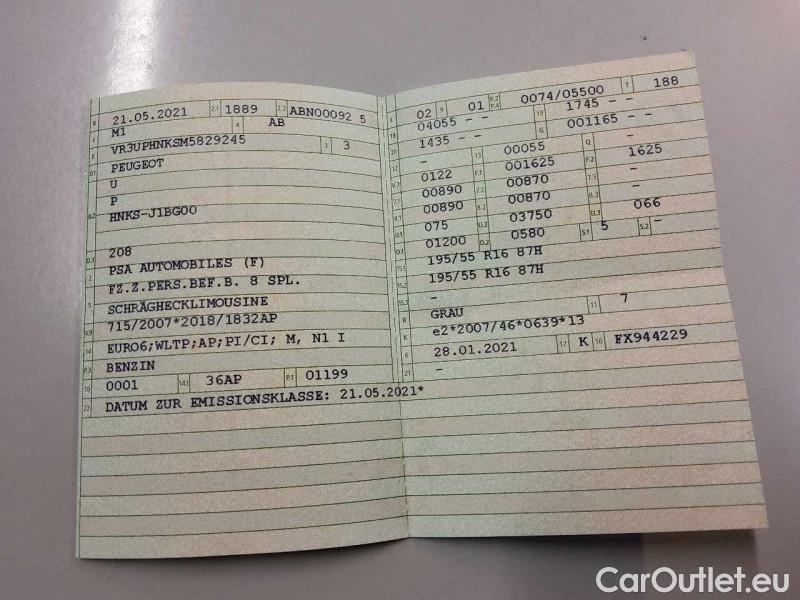 B 21.05.2021 2.1 1889 2.2 ABN00092 5
J M1 4 AB
E VR3UPHNKSM5829245 3 3
D.1 PEUGEOT
U
D.2 P
HNKS-J1BG00
D.3 208
2 PSA AUTOMOBILES (F)
FZ.Z.PERS.BEF.B. 8 SPL.
5 SCHRÄGHECKLIMOUSINE
V.9 715/2007*2018/1832AP
14 EURO6;WLTP;AP;PI/CI; M, N1 I
P.3 BENZIN
10 0001 14.1 36AP P.1 01199
22 DATUM ZUR EMISSIONSKLASSE: 21.05.2021*
L 02 9 01 P.2 P.4 0074/05500 T 188
18 04055 - - 19 1745 - -
20 1435 - - G 001165 - -
12 - 13 00055 Q -
V.7 0122 F.1 001625 F.2 1625
7.1 00890 7.2 00870 7.3 -
8.1 00890 8.2 00870 8.3 -
U.1 075 U.2 03750 U.3 066
O.1 01200 O.2 0580 S.1 5 S.2 -
15.1 195/55 R16 87H
15.2 195/55 R16 87H
15.3 -
R GRAU 11 7
K e2*2007/46*0639*13
6 28.01.2021 17 K 16 FX944229
21 -
CarOutlet.eu